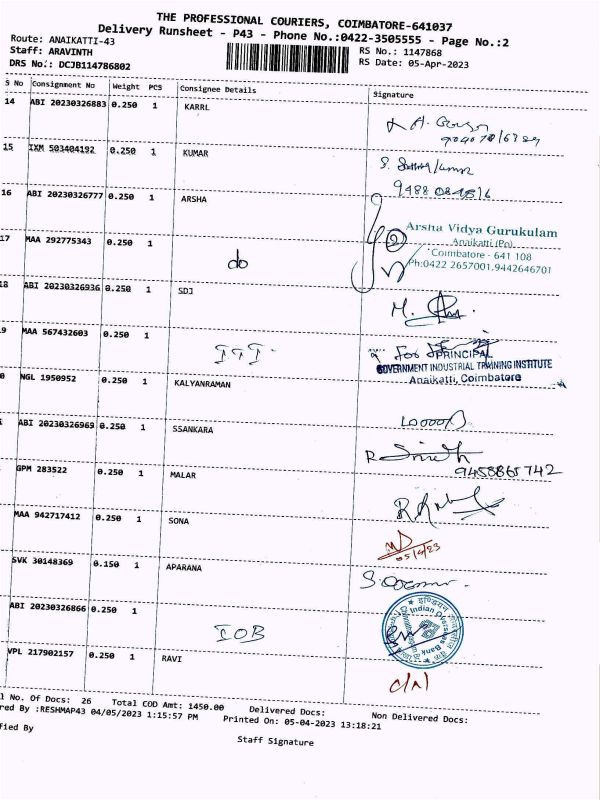 THE PROFESSIONAL COURIERS, COIMBATORE-641037
Delivery Runsheet - P43 - Phone No.:0422-3505555 - Page No.:2
Route: ANAIKATTI-43
RS No.: 1147868
Staff: ARAVINTH
RS Date: 05-Apr-2023
DRS No.: DCJB114786802
S No Consignment No Weight PCS Consignee Details Signature
14 ABI 20230326883 0.250 1 KARRL
15 IXM 503404192 0.250 1 KUMAR
16 ABI 20230326777 0.250 1 ARSHA
Arsha Vidya Gurukulam
Anaikatti (Po)
Coimbatore - 641 108
Ph:0422 2657001,9442646701
17 MAA 292775343 0.250 1 do
18 ABI 20230326936 0.250 1 SDJ
9 MAA 567432603 0.250 1 ITI
For PRINCIPAL
GOVERNMENT INDUSTRIAL TRAINING INSTITUTE
Anaikatti, Coimbatore
0 NGL 1950952 0.250 1 KALYANRAMAN
ABI 20230326969 0.250 1 SSANKARA
9458865742
GPM 283522 0.250 1 MALAR
MAA 942717412 0.250 1 SONA
05/4/23
SVK 30148369 0.150 1 APARANA
ABI 20230326866 0.250 1 IOB
Indian Overseas Bank
VPL 217902157 0.250 1 RAVI
l No. Of Docs: 26 Total COD Amt: 1450.00 Delivered Docs: Non Delivered Docs:
red By :RESHMAP43 04/05/2023 1:15:57 PM Printed On: 05-04-2023 13:18:21
fied By
Staff Signature